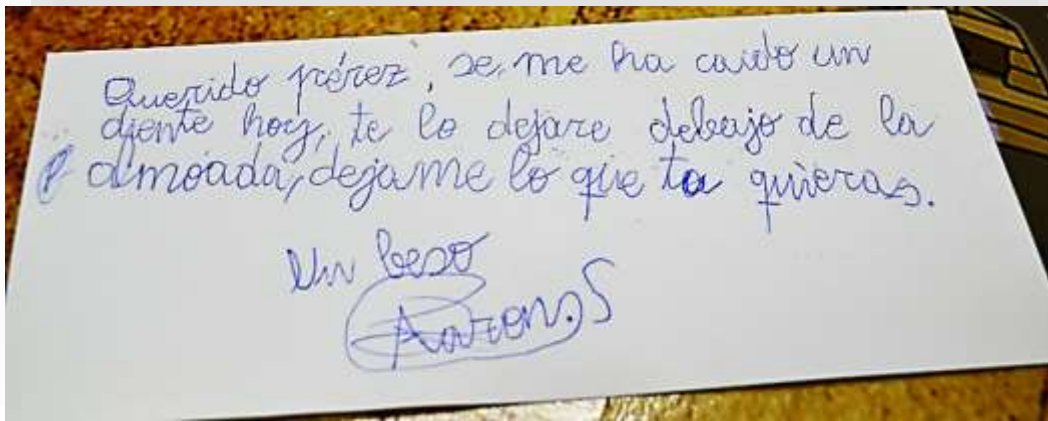 Querido pérez, se me ha caido un
diente hoy, te lo dejare debajo de la
almoada, dejame lo que tu quieras.
Un beso
Aaron.S